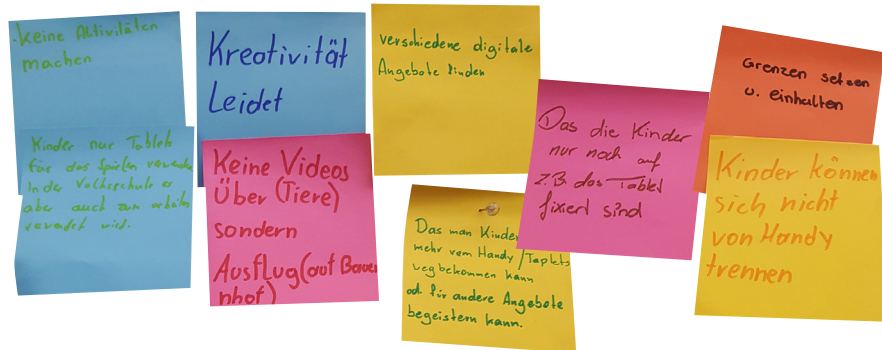 keine Aktivitäten
machen
Kinder nur Tablets
für das Spielen
In der Volksschule es
aber auch zum arbeiten
verwendet wird.
Kreativität
Leidet
Keine Videos
Über (Tiere)
sondern
Ausflug (auf Bauer
nhof)
verschiedene digitale
Angebote finden
Das man Kinder
mehr vom Handy / Taplets
wegbekommen kann
od. für andere Angebote
begeistern kann.
Das die Kinder
nur noch auf
z.B das Tablet
fixiert sind
Grenzen setzen
u. einhalten
Kinder können
sich nicht
von Handy
trennen